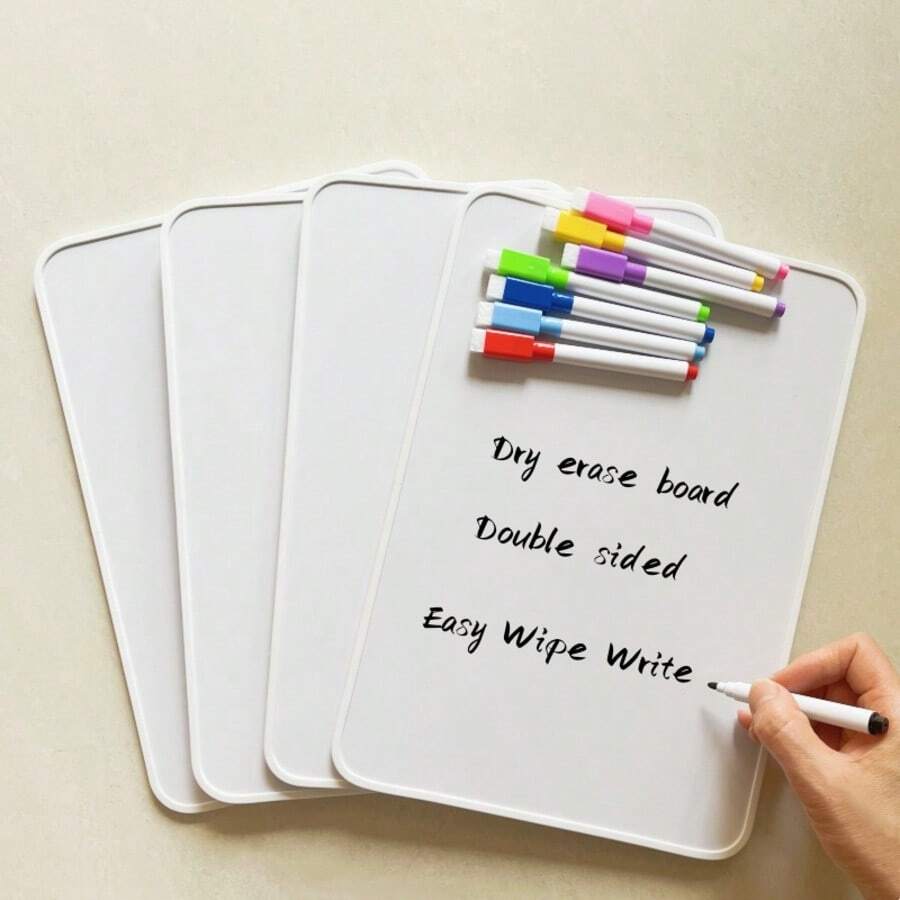 Dry erase board
Double sided
Easy Wipe Write